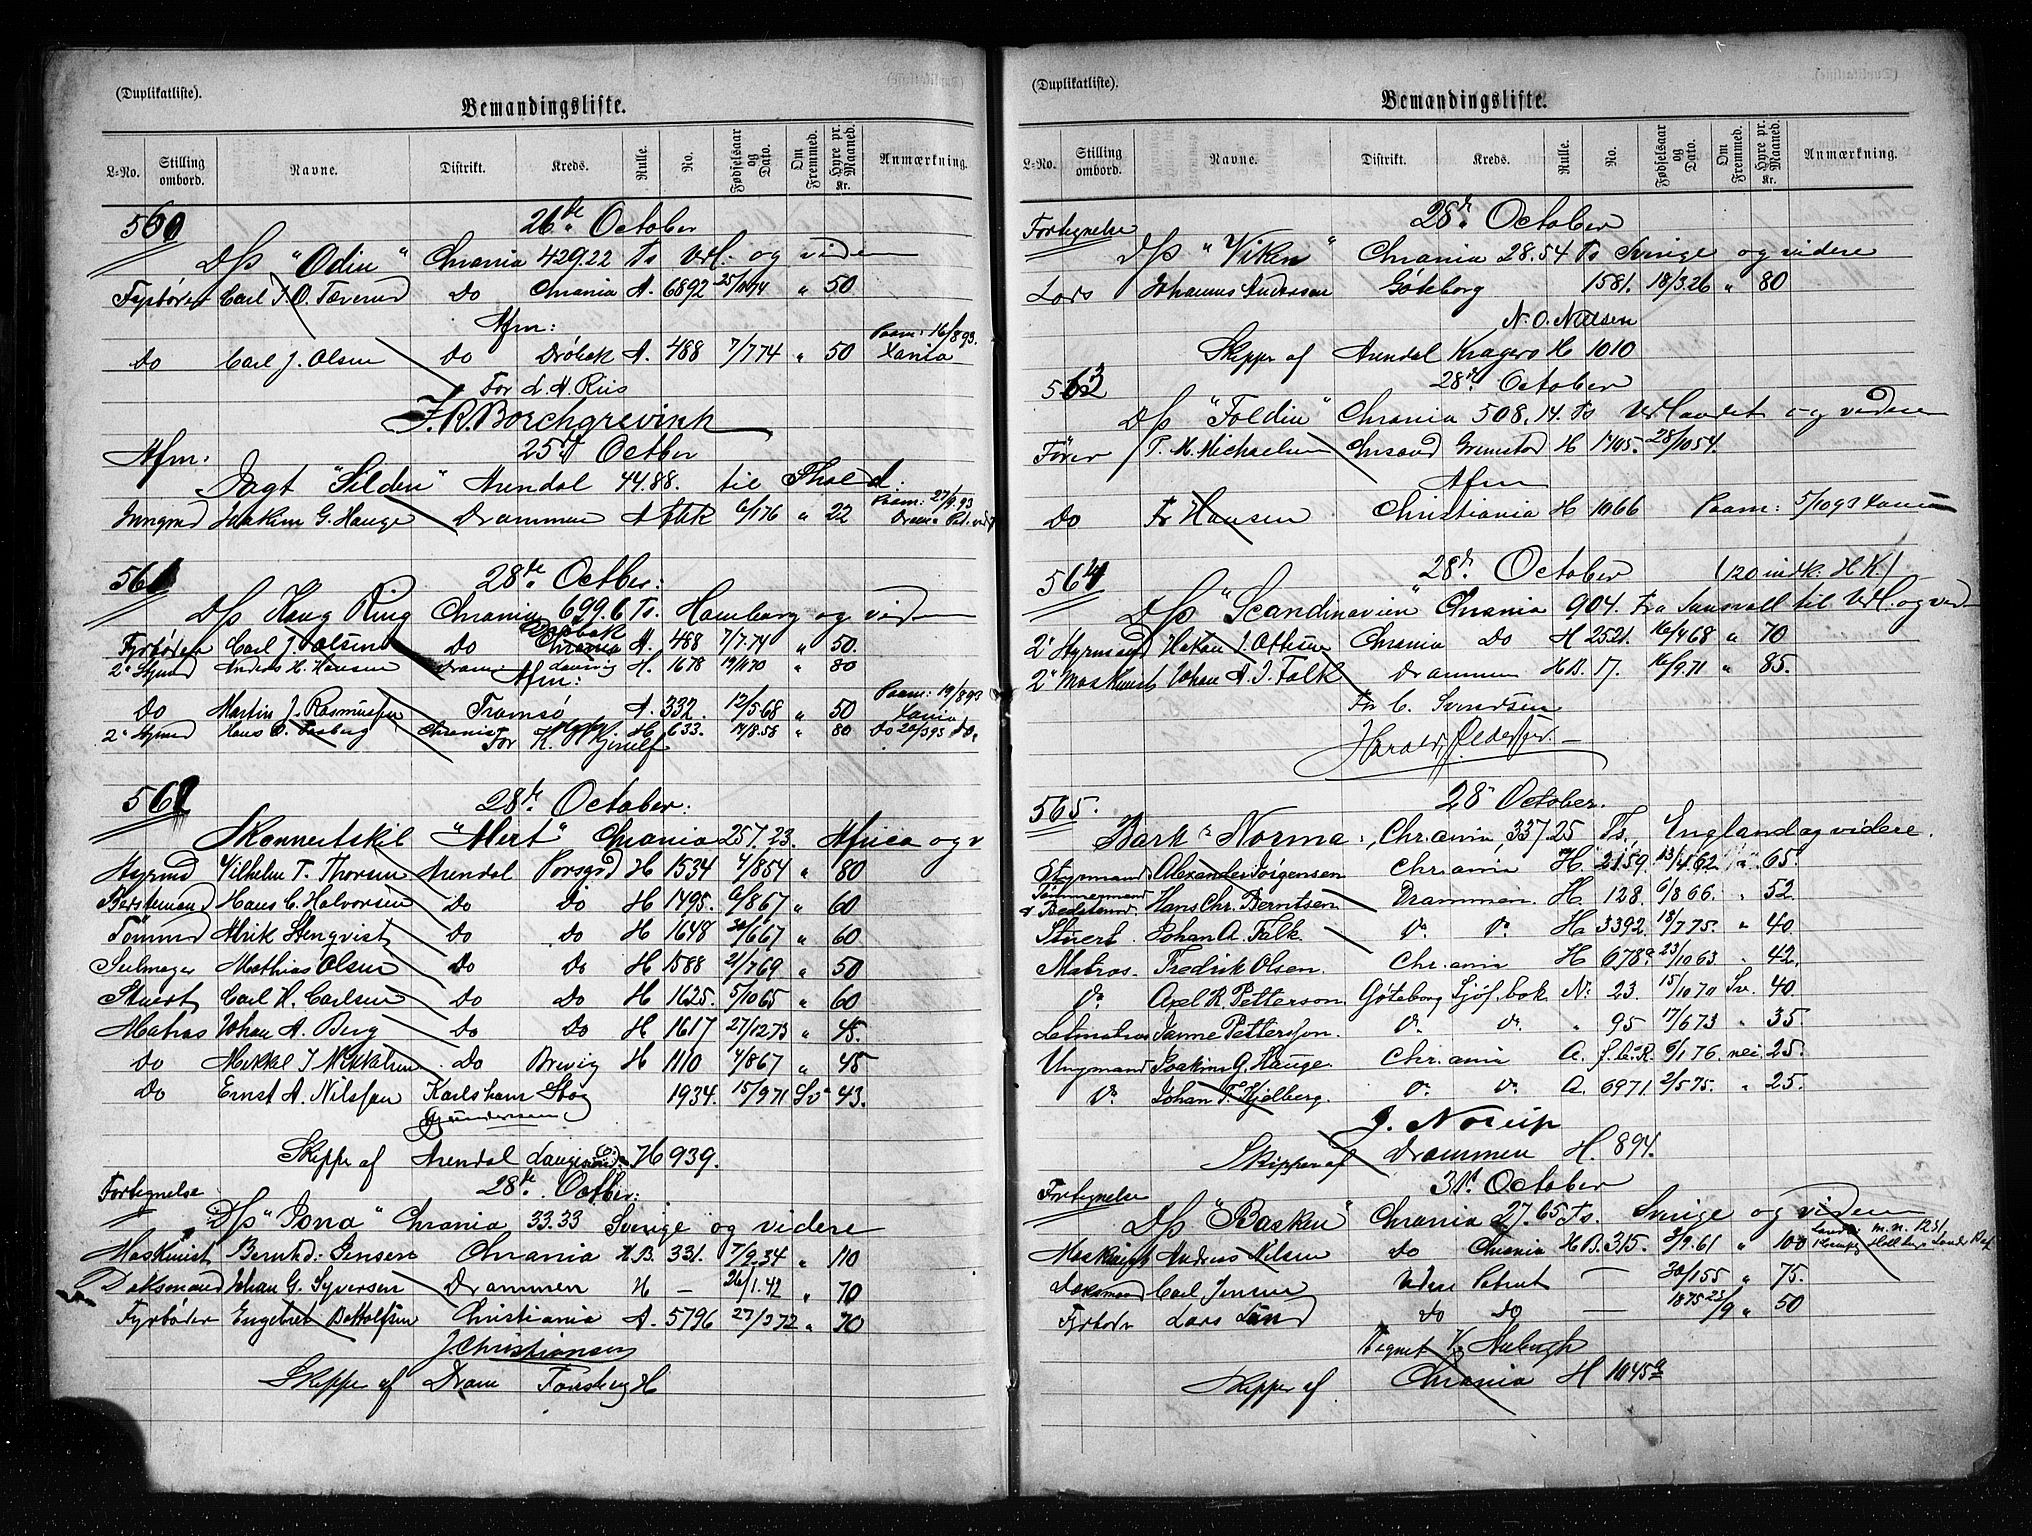 (Duplikatliste).
Bemandingsliste.
L-No. Stilling ombord. Navne. Distrikt. Kreds. Rulle. No. Fødselsaar og Dato. Om Fremmed. Hyre pr. Maaned. Kr. Anmærkning.
560 26de October
D/s "Odin" Chrania 429.22 Ts Udl. og videre
Fyrbøder Carl J. O. Do Chrania A. 6892 50
Afm:
Do Carl J. Olsen Do Drøbak A. 488 7/7 74 " 50 Paam: 16/8 93. Xania
For L. A. Riis
F. R. Borchgrevink
Afm: 25de Octber
Jagt "Silden" Arendal 44.88. til
Jungmd Joakim G. Hauge Drammen A 6/1 76 " 22 Paam: 27/9 93
561 28de Octber:
D/s Kong Ring Chrania 699.6 Ts. Hamborg og viden
Fyrbøder Carl J. Olsen Do Drøbak A. 488 7/7.74 " 50.
2. Styrmd Anders H. Hansen Dram Laurvig H. 1678 " 80
Afm:
Do Martin J. Rasmussen Tromsø A. 332. 12/5 68 " 50 Paam: 19/8 93 Xania
2. Styrmd Hans Chrania H. 633. " 80 Do
For K. Gjerulf
562 28de October:
Skonnertskib "Alert" Chrania 257.23. Africa og v
Styrmd Vilhelm T. Thorsen Arendal Porsgrd H 1534 4/8 54 " 80
Bestemand Hans C. Halvorsen Do Do H 1495. 6/8 67 " 60
Tømmd Alrik Stenqvist Do Do H 1648 30/6 67 " 60
Seilmager Mathias Olsen Do Do H 1588 21/7 69 " 50
Stuert Carl H. Carlsen Do Do H 1625. 5/10 65 " 60
Matros Johan A. Berg Do Do H 1617 27/12 73 " 45.
Do Mikkel J Mikkelsen Do Brevig H 1110 4/8 67 " 45
Do Ernst A. Nilssen Karlsham Skog 1934. 15/9 71 Sv " 43.
Gundersen
Skipper af Arendal Langesund H 939.
Fortegnelse 28de Octber:
D/s "Jona" Chrania 33.33 Sverige og videre
Maskinist Bernhd: Jensen Chrania H.B. 331. 7/9.34 " 110
Dæksmand Johan G. Syversen Drammen H — 26/1.42 " 70
Fyrbøder Engebret Bottolfsen Christiania A. 5796 27/3 72 " 70
J. Christiansen
Skipper af Dram Tønsberg H
(Duplikatliste).
Bemandingsliste.
L-No. Stilling ombord. Navne. Distrikt. Kreds. Rulle. No. Fødselsaar og Dato. Om Fremmed. Hyre pr. Maaned. Kr. Anmærkning.
Fortegnelse 28de October
D/s "Viken" Chrania 28.54 Ts Sverige og videre
Lods Johannes Andersen Gøteborg 1581. 18/3.26 " 80
N. O. Nilsen
Skipper af Arendal Kragerø H 1010
563 28de October
D/s "Foldin" Chrania 508.14. Ts Udlandet og videre
Fører P. M. Michaelsen Chrsand Grimstad H 1405. 28/10 54.
Afm
Do Fr Hansen Christiania H 1066 Paam: 5/10 93 Xania
564 28de October (120 indk: H K)
D/s "Scandinavien" Chrania 904. Fra Sunsvall til Udl. og vid
2. Styrmand Hakon J. Ottesen Chrania Do H 2521. 16/4 68 " 70
2. Maskinist Johan A. J. Falk Drammen H.B. 17. 16/9.71 " 85.
For C. Svendsen
Harald Pedersen.
565. 28 October.
Bark "Norma", Chr.ania, 337.25 Ts, England og videre.
Styrmand Alexander Jørgensen Chr.ania H 2159. 23/4.62 " 65.
Tømmermand & Bedstemd. Hans Chr. Berntsen Drammen. H. 128. 6/8 66. " 52.
Stuert. Johan A. Falk. Do Do H 3392. 18/7 75. " 40.
Matros. Fredrik Olsen. Chr.ania H 678a 23/10 63. " 42.
Do Axel R. Petterson. Gøteborg Sjöf. bok N. 23. 15/10 70 Sv. 40.
Letmatros Janne Petterson. Do Do " 95 17/6 73 " 35.
Ungmand Joakim G. Hauge. Chr.ania A. f. A. R. 6/1 76 nei. 25.
Do Johan F. Hjelberg. Do Do A. 6971. 2/5 75. " 25.
J. Norup
Skipper af Drammen H. 894.
Fortegnelse 31te October
D/s "Basken" Chrania 27.65 Ts. Sverige og viden
Maskinist Andreas Nilsen Do Chrania H.B. 315. 2/9.61 " 100
Dæksmand Carl Jensen Uden Patent — 30/1 55 " 75.
Fyrbødr Lars Lund Do Do — 1875 25/9 " 50
Tegnet
Skipper af Chrania H 1045a